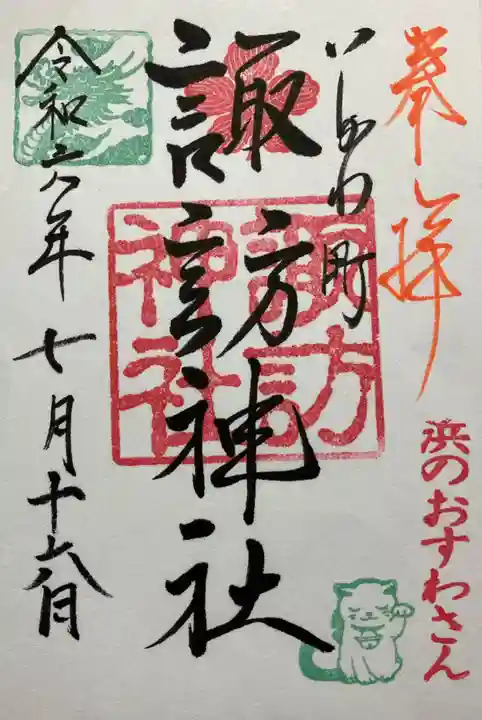 奉拝
浜のおすわさん
諏訪神社
諏訪
神社
令和六年七月十六日